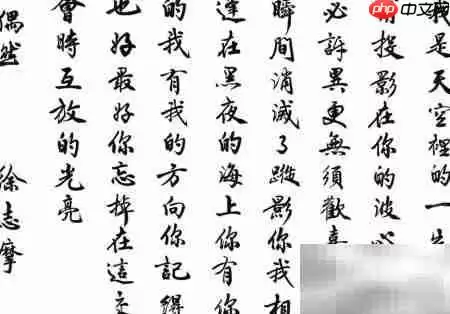 php中文网
我是天空裡的一
投影在你的波心
必訝異更無須歡喜
瞬間消滅了蹤影你我相
逢在黑夜的海上你有你
的我有我的方向你記得
也好最好你忘掉在這交
會時互放的光亮
偶然 徐志摩